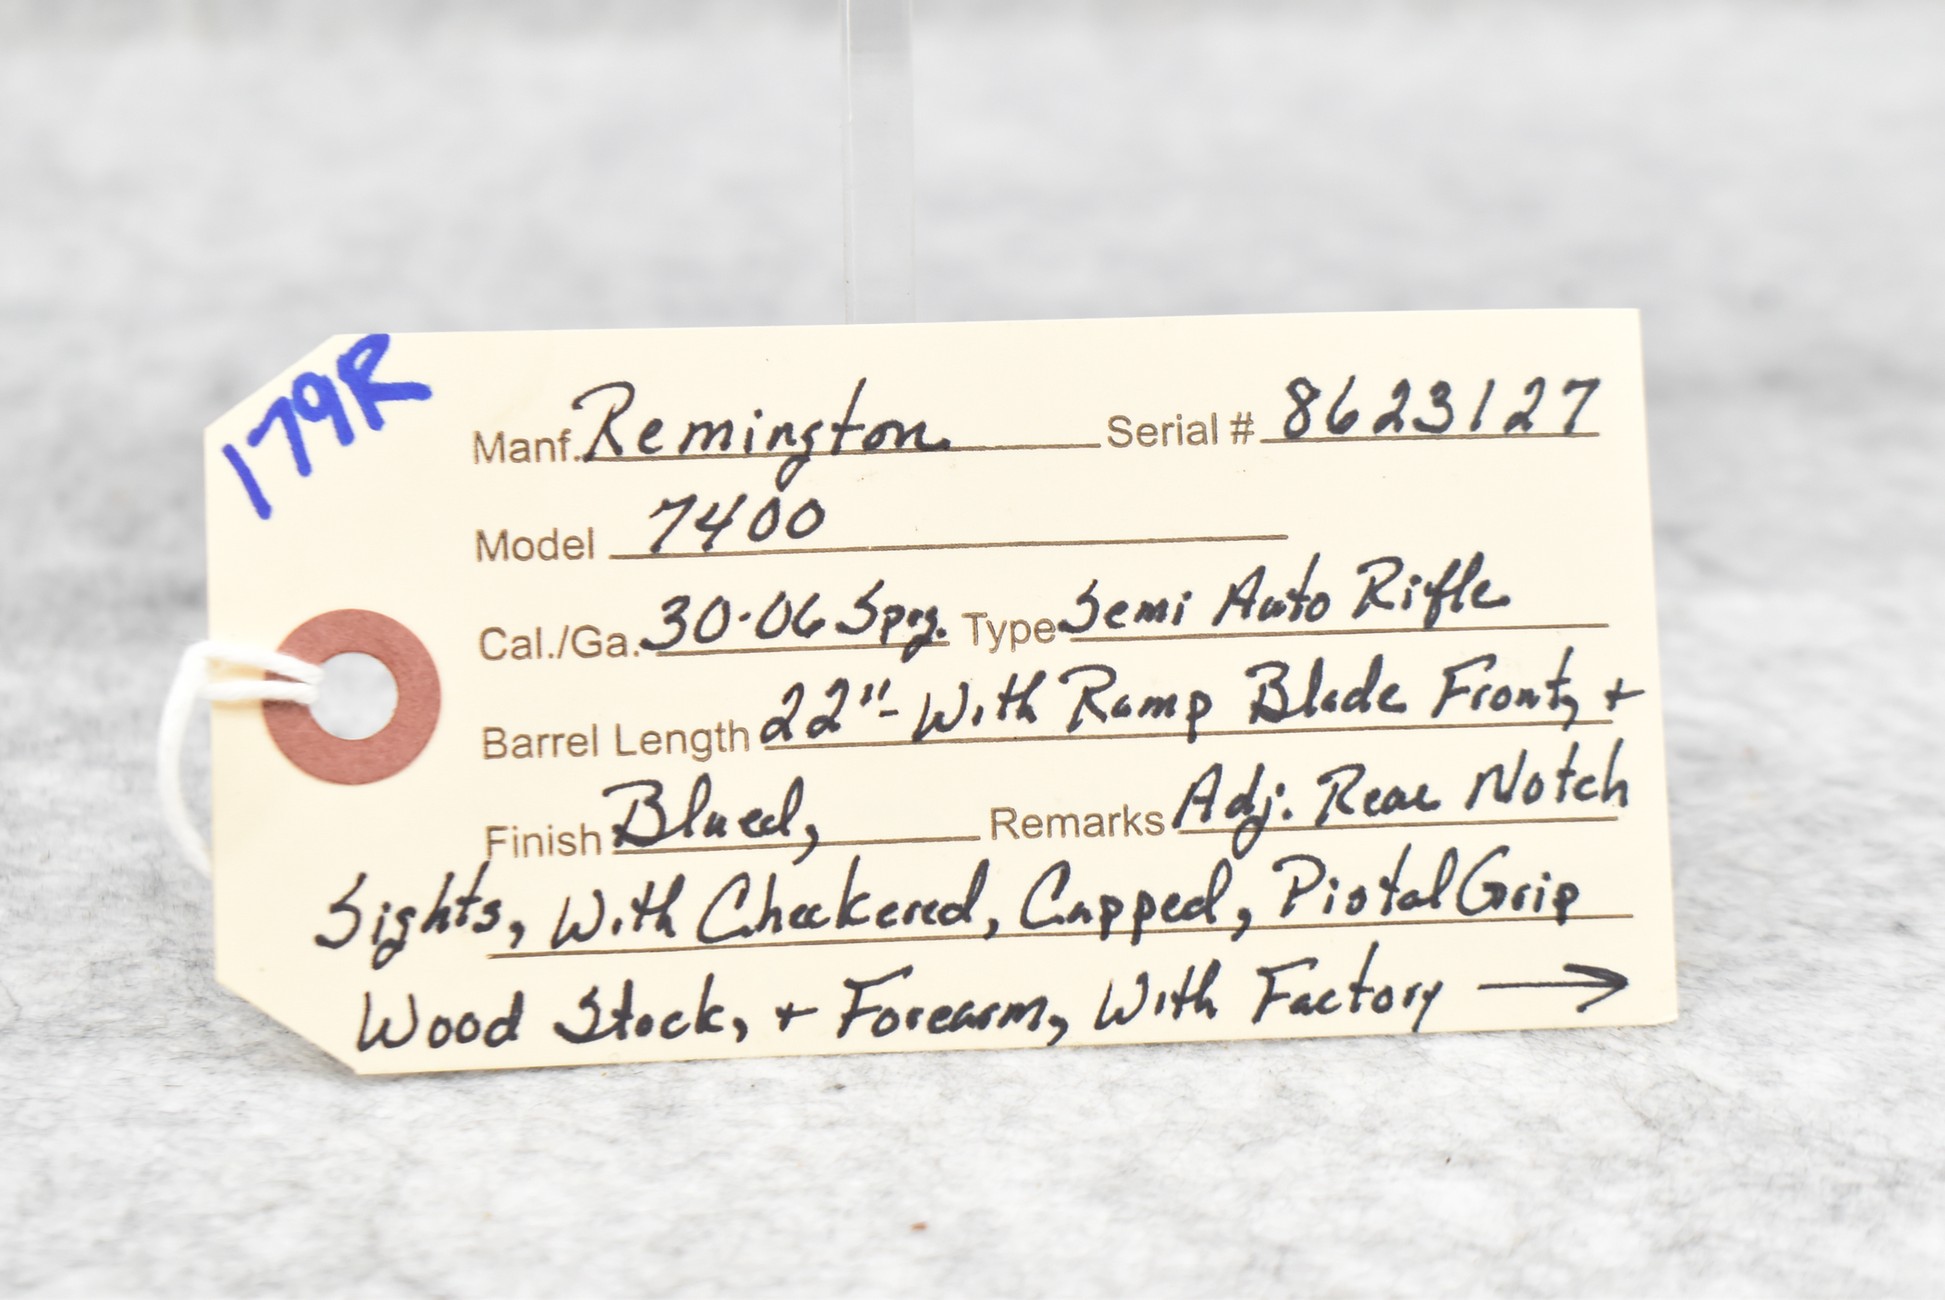 179R
Manf. Remington Serial # 8623127
Model 7400
Cal./Ga. 30-06 Sprg. Type Semi Auto Rifle
Barrel Length 22"- With Ramp Blade Front, +
Finish Blued, Remarks Adj. Rear Notch
Sights, With Checkered, Capped, Pistol Grip
Wood Stock, + Forearm, With Factory →